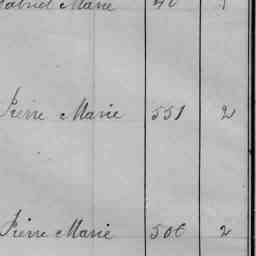 Gabriel Marie
Pierre Marie 551 2
Pierre Marie 506 2